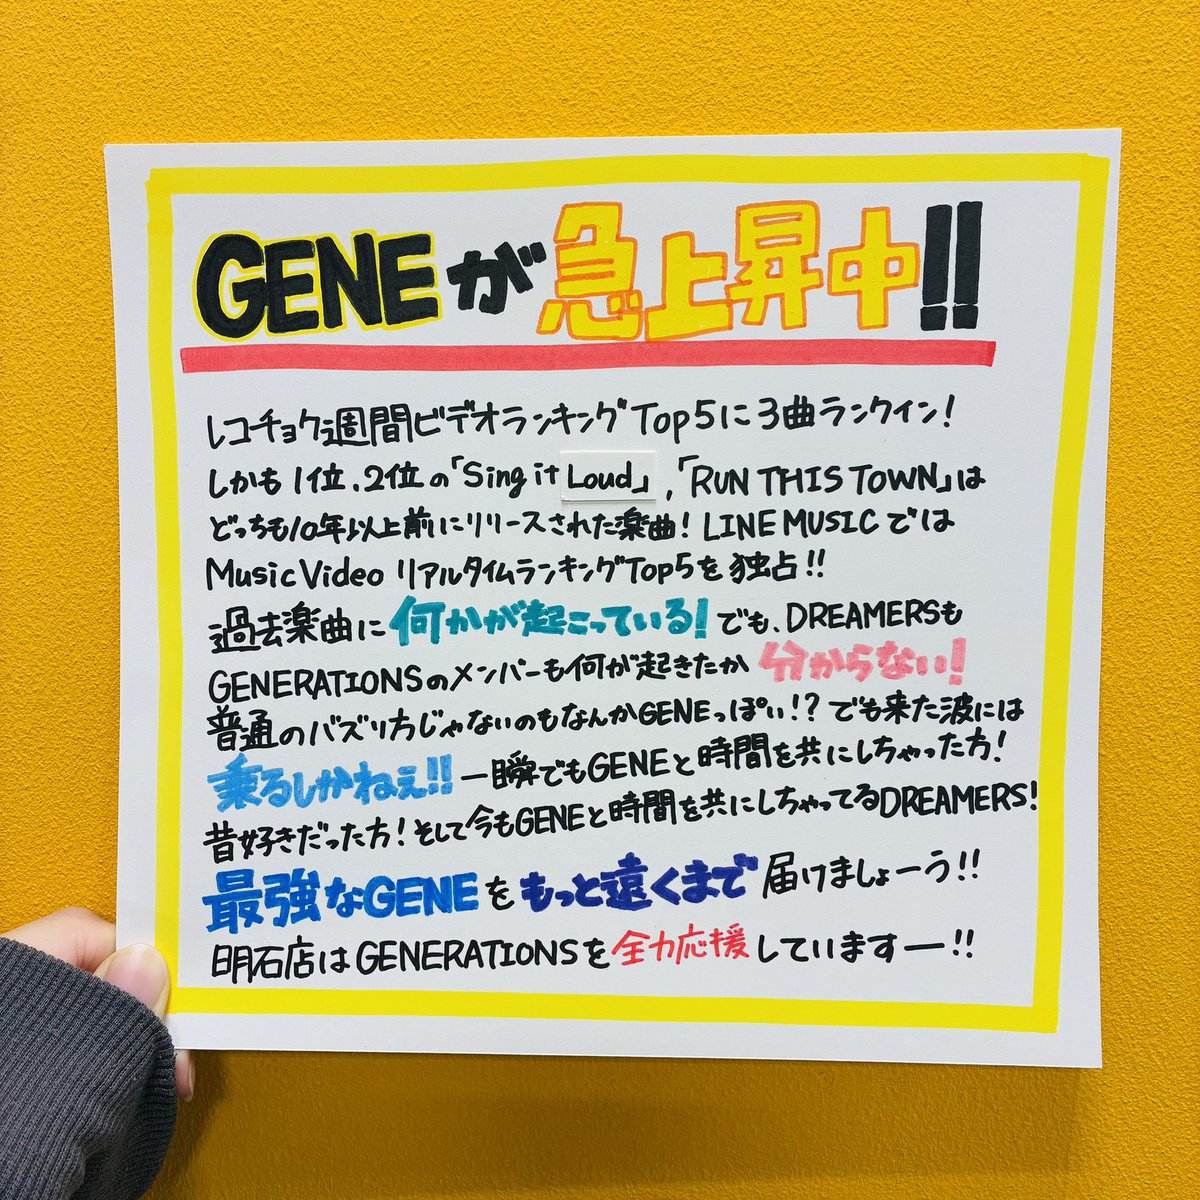 GENEが急上昇中!!
レコチョク週間ビデオランキングTop5に3曲ランクイン!
しかも1位、2位の「Sing it Loud」,「RUN THIS TOWN」は
どっちも10年以上前にリリースされた楽曲! LINE MUSICでは
Music Video リアルタイムランキングTop5を独占!!
過去楽曲に何かが起こっている!でも、DREAMERSも
GENERATIONSのメンバーも何が起きたか分からない!
普通のバズり方じゃないのもなんかGENEっぽい!?でも来た波には
乗るしかねぇ!!一瞬でもGENEと時間を共にしちゃった方!
昔好きだった方!そして今もGENEと時間を共にしちゃってるDREAMERS!
最強なGENEをもっと遠くまで届けましょーう!!
明石店はGENERATIONSを全力応援していますー!!